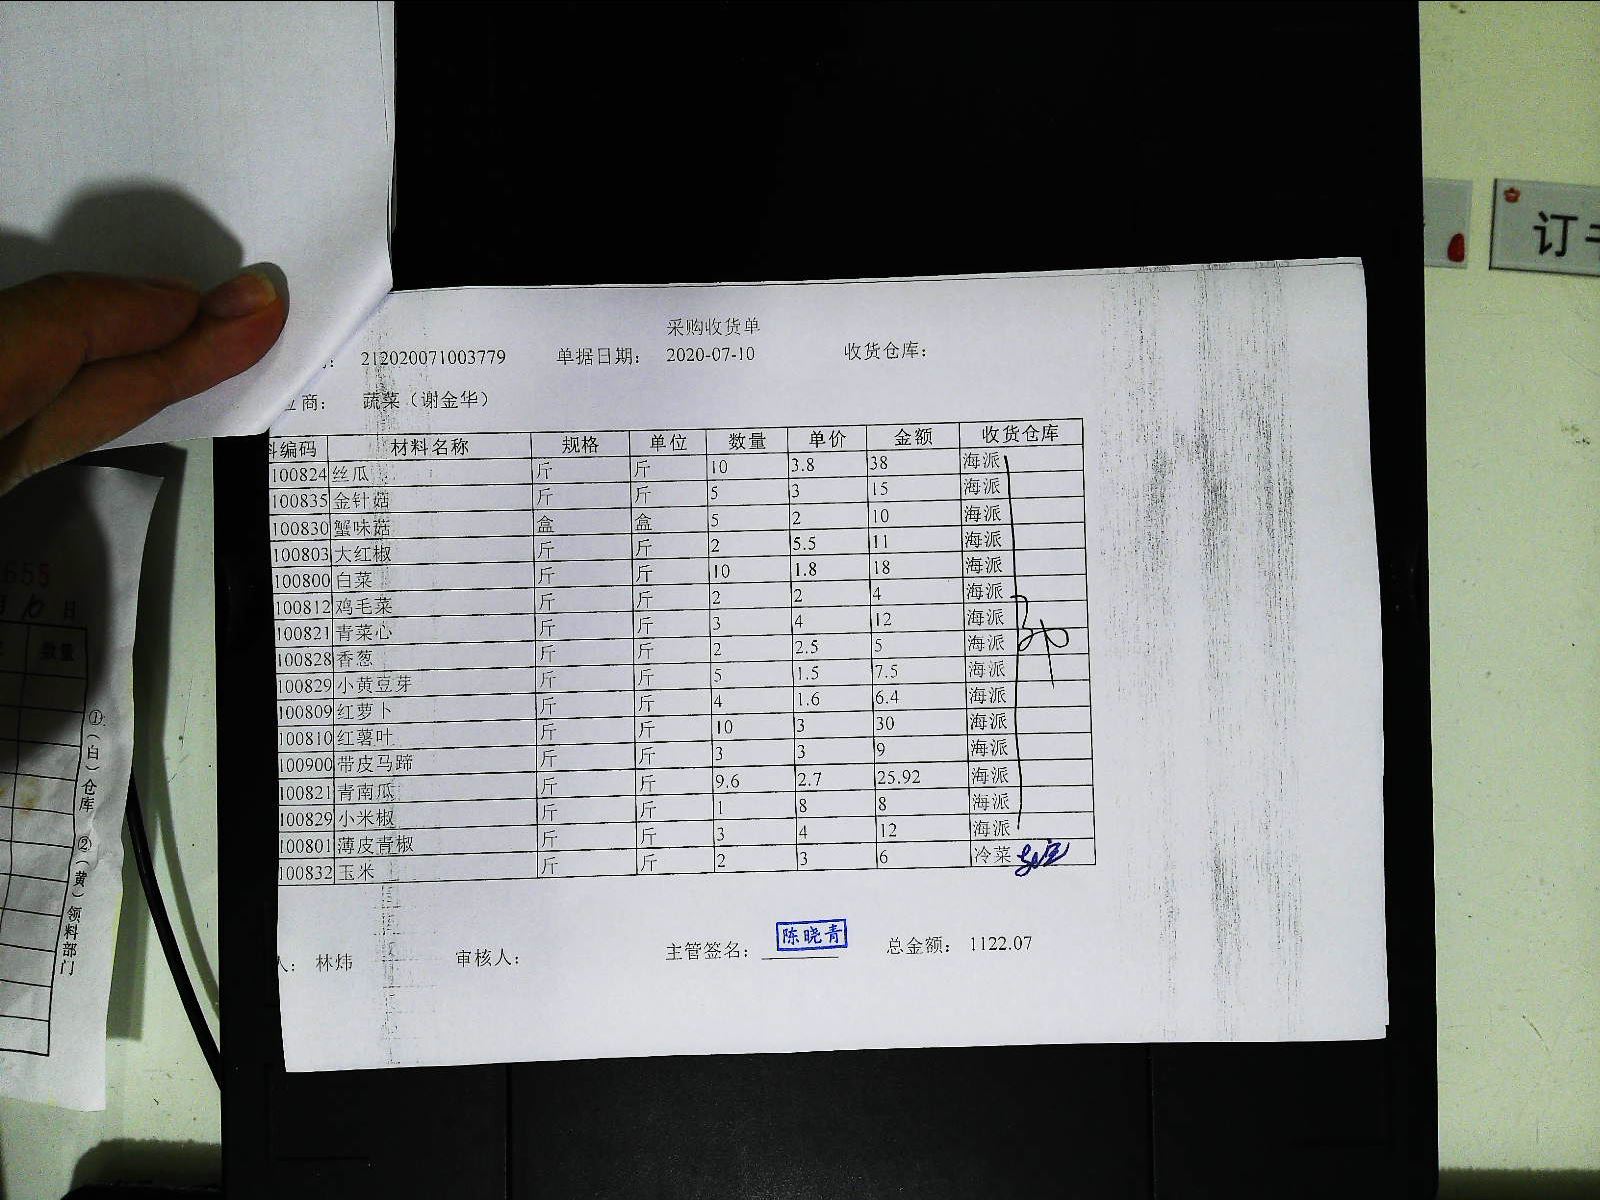 采购收货单
：212020071003779 单据日期： 2020-07-10 收货仓库：
应商： 蔬菜（谢金华）
料编码 材料名称 规格 单位 数量 单价 金额 收货仓库
100824 丝瓜 斤 斤 10 3.8 38 海派
100835 金针菇 斤 斤 5 3 15 海派
100830 蟹味菇 盒 盒 5 2 10 海派
100803 大红椒 斤 斤 2 5.5 11 海派
100800 白菜 斤 斤 10 1.8 18 海派
100812 鸡毛菜 斤 斤 2 2 4 海派
100821 青菜心 斤 斤 3 4 12 海派
100828 香葱 斤 斤 2 2.5 5 海派
100829 小黄豆芽 斤 斤 5 1.5 7.5 海派
100809 红萝卜 斤 斤 4 1.6 6.4 海派
100810 红薯叶 斤 斤 10 3 30 海派
100900 带皮马蹄 斤 斤 3 3 9 海派
100821 青南瓜 斤 斤 9.6 2.7 25.92 海派
100829 小米椒 斤 斤 1 8 8 海派
100801 薄皮青椒 斤 斤 3 4 12 海派
100832 玉米 斤 斤 2 3 6 冷菜
人： 林炜 审核人： 主管签名： 陈晓青 总金额： 1122.07
订
655
月 10 日
数量
①（白）仓库 ②（黄）领料部门